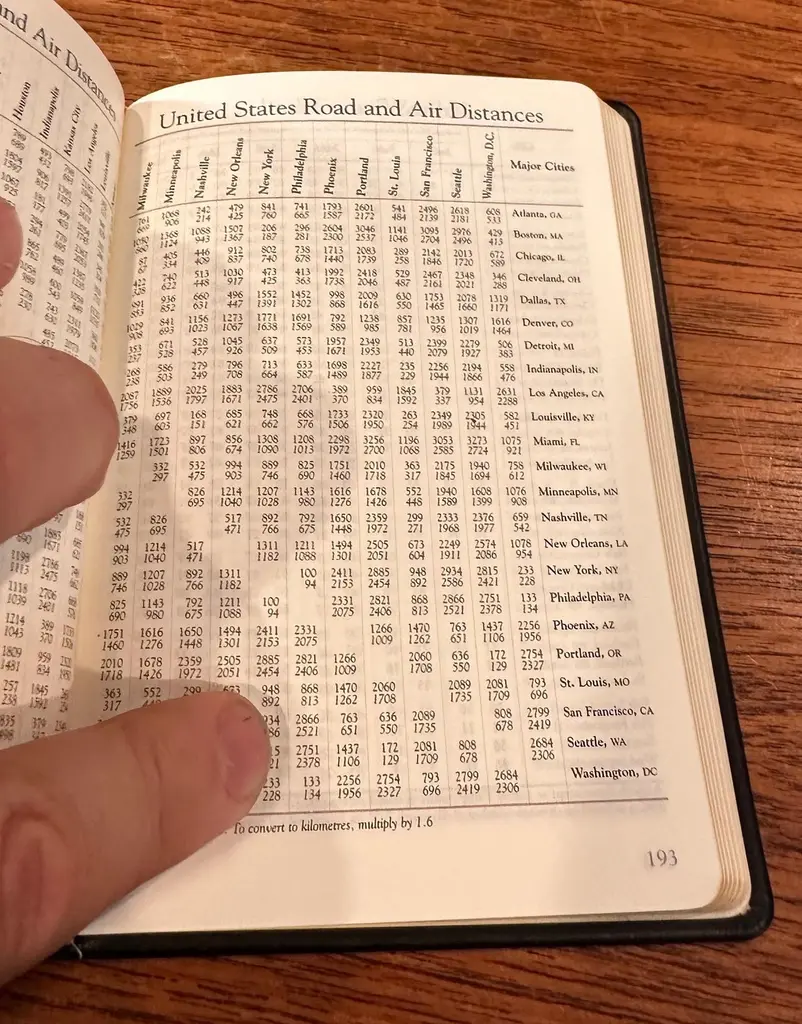 and Air Distances
Houston
Indianapolis
Kansas City
Los Angeles
United States Road and Air Distances
Milwaukee Minneapolis Nashville New Orleans New York Philadelphia Phoenix Portland St. Louis San Francisco Seattle Washington, D.C. Major Cities
761 1068 242 479 841 741 1793 2601 541 2496 2618 608 Atlanta, GA
669 906 214 425 760 665 1587 2172 484 2139 2181 533
1368 1088 1507 206 296 2604 3046 1141 3095 2976 429 Boston, MA
1124 943 1367 187 281 2300 2537 1046 2704 2496 413
87 405 446 912 802 738 1713 2083 289 2142 2013 672 Chicago, IL
67 334 409 837 740 678 1440 1739 258 1846 1720 589
422 740 513 1030 473 413 1992 2418 529 2467 2348 346 Cleveland, OH
328 622 448 917 425 363 1738 2046 487 2161 2021 288
936 660 496 1552 1452 998 2009 630 1753 2078 1319 Dallas, TX
852 631 447 1391 1302 868 1616 550 1465 1660 1171
1029 841 1156 1273 1771 1691 792 1238 857 1235 1307 1616 Denver, CO
908 693 1023 1067 1638 1569 589 985 781 956 1019 1464
353 671 528 1045 637 573 1957 2349 513 2399 2279 506 Detroit, MI
237 528 457 926 509 453 1671 1953 440 2079 1927 383
268 586 279 796 713 633 1698 2227 235 2256 2194 558 Indianapolis, IN
238 503 249 708 664 587 1489 1877 229 1944 1866 476
2087 1889 2025 1883 2786 2706 389 959 1845 379 1131 2631 Los Angeles, CA
1756 1536 1797 1671 2475 2401 370 834 1592 337 954 2288
379 697 168 685 748 668 1733 2320 263 2349 2305 582 Louisville, KY
348 603 151 621 662 576 1506 1950 254 1989 1944 451
1416 1723 897 856 1308 1208 2298 3256 1196 3053 3273 1075 Miami, FL
1259 1501 806 674 1090 1013 1972 2700 1068 2585 2724 921
332 532 994 889 825 1751 2010 363 2175 1940 758 Milwaukee, WI
297 475 903 746 690 1460 1718 317 1845 1694 612
332 826 1214 1207 1143 1616 1678 552 1940 1608 1076 Minneapolis, MN
297 695 1040 1028 980 1276 1426 448 1589 1399 908
532 826 517 892 792 1650 2359 299 2333 2376 659 Nashville, TN
475 695 471 766 675 1448 1972 271 1968 1977 542
994 1214 517 1311 1211 1494 2505 673 2249 2574 1078 New Orleans, LA
903 1040 471 1182 1088 1301 2051 604 1911 2086 954
889 1207 892 1311 100 2411 2885 948 2934 2815 233 New York, NY
746 1028 766 1182 94 2153 2454 892 2586 2421 228
825 1143 792 1211 100 2331 2821 868 2866 2751 133 Philadelphia, PA
690 980 675 1088 94 2075 2406 813 2521 2378 134
1751 1616 1650 1494 2411 2331 1266 1470 763 1437 2256 Phoenix, AZ
1460 1276 1448 1301 2153 2075 1009 1262 651 1106 1956
2010 1678 2359 2505 2885 2821 1266 2060 636 172 2754 Portland, OR
1718 1426 1972 2051 2454 2406 1009 1708 550 129 2327
363 552 299 673 948 868 1470 2060 2089 2081 793 St. Louis, MO
317 892 813 1262 1708 1735 1709 696
2866 763 636 2089 808 2799 San Francisco, CA
2521 651 550 1735 678 2419
2751 1437 172 2081 808 2684 Seattle, WA
2378 1106 129 1709 678 2306
233 133 2256 2754 793 2799 2684 Washington, DC
228 134 1956 2327 696 2419 2306
To convert to kilometres, multiply by 1.6
193